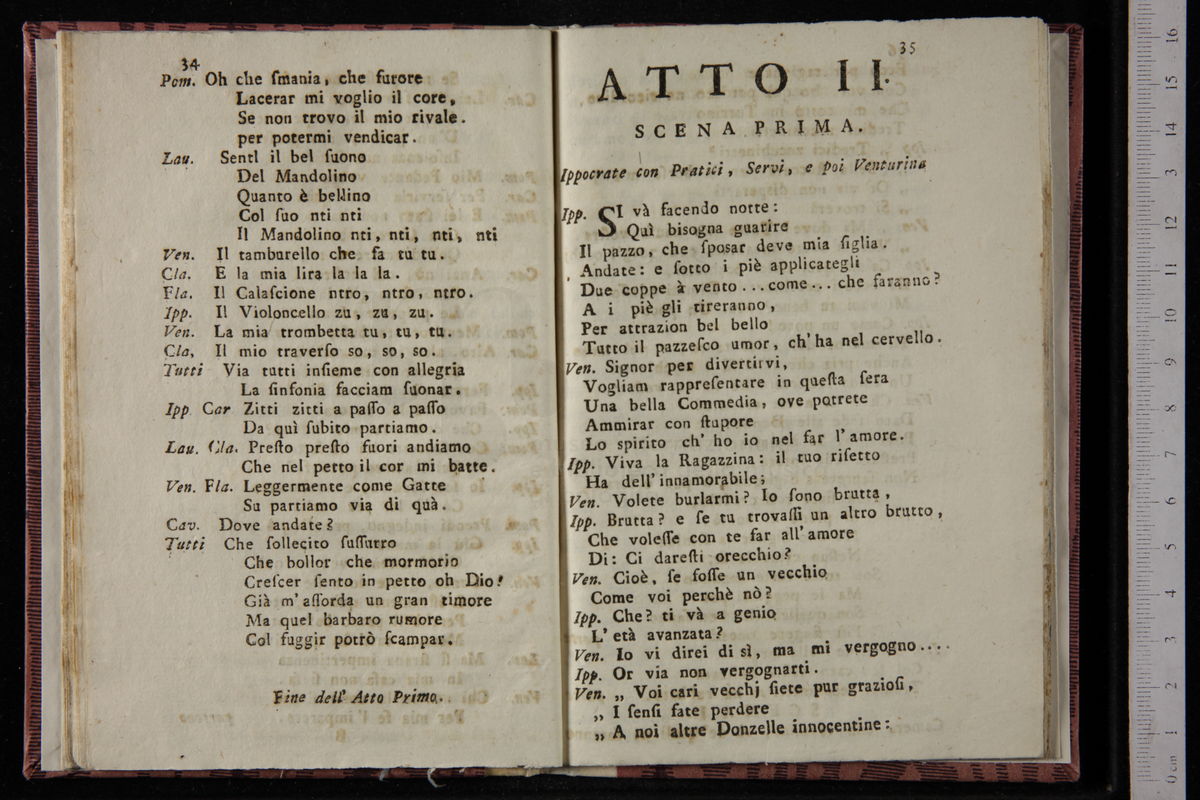 34
Pom. Oh che ſmania, che furore
Lacerar mi voglio il core,
Se non trovo il mio rivale.
per potermi vendicar.
Lau. Sentl il bel ſuono
Del Mandolino
Quanto è bellino
Col ſuo nti nti
Il Mandolino nti, nti, nti, nti
Ven. Il tamburello che fa tu tu.
Cla. E la mia lira la la la.
Fla. Il Calaſcione ntro, ntro, ntro.
Ipp. Il Violoncello zu, zu, zu.
Ven. La mia trombetta tu, tu, tu.
Cla, Il mio traverſo so, so, so.
Tutti Via tutti inſieme con allegria
La ſinfonia facciam ſuonar.
Ipp Car Zitti zitti a paſſo a paſſo
Da quì ſubito partiamo.
Lau. Cla. Preſto preſto fuori andiamo
Che nel petto il cor mi batte.
Ven. Fla. Leggermente come Gatte
Su partiamo via di quà.
Cav. Dove andate?
Tutti Che ſollecito ſuſſurro
Che bollor che mormorio
Creſcer ſento in petto oh Dio!
Già m'aſſorda un gran timore
Ma quel barbaro rumore
Col fuggir potrò ſcampar.
Fine dell' Atto Primo.
35
ATTO II.
SCENA PRIMA.
Ippocrate con Pratici, Servi, e poi Venturina
Ipp. SI và facendo notte:
Quì bisogna guarire
Il pazzo, che ſposar deve mia figlia.
Andate: e ſotto i piè applicategli
Due coppe à vento ... come ... che faranno?
A i piè gli tireranno,
Per attrazion bel bello
Tutto il pazzeſco umor, ch'ha nel cervello.
Ven. Signor per divertirvi,
Vogliam rappreſentare in queſta ſera
Una bella Commedia, ove potrete
Ammirar con ſtupore
Lo spirito ch' ho io nel far l'amore.
Ipp. Viva la Ragazzina: il tuo riſetto
Ha dell'innamorabile;
Ven. Volete burlarmi? Io ſono brutta,
Ipp. Brutta? e ſe tu trovaſſi un altro brutto,
Che voleſſe con te far all'amore
Di: Ci dareſti orecchio?
Ven. Cioè, ſe foſſe un vecchio
Come voi perchè nò?
Ipp. Che? ti và a genio
L'età avanzata?
Ven. Io vi direi di sì, ma mi vergogno....
Ipp. Or via non vergognarti.
Ven. „ Voi cari vecchj ſiete pur grazioſi,
„ I ſenſi fate perdere
„ A noi altre Donzelle innocentine:
0 cm 1 2 3 4 5 6 7 8 9 10 11 12 3 14 15 16